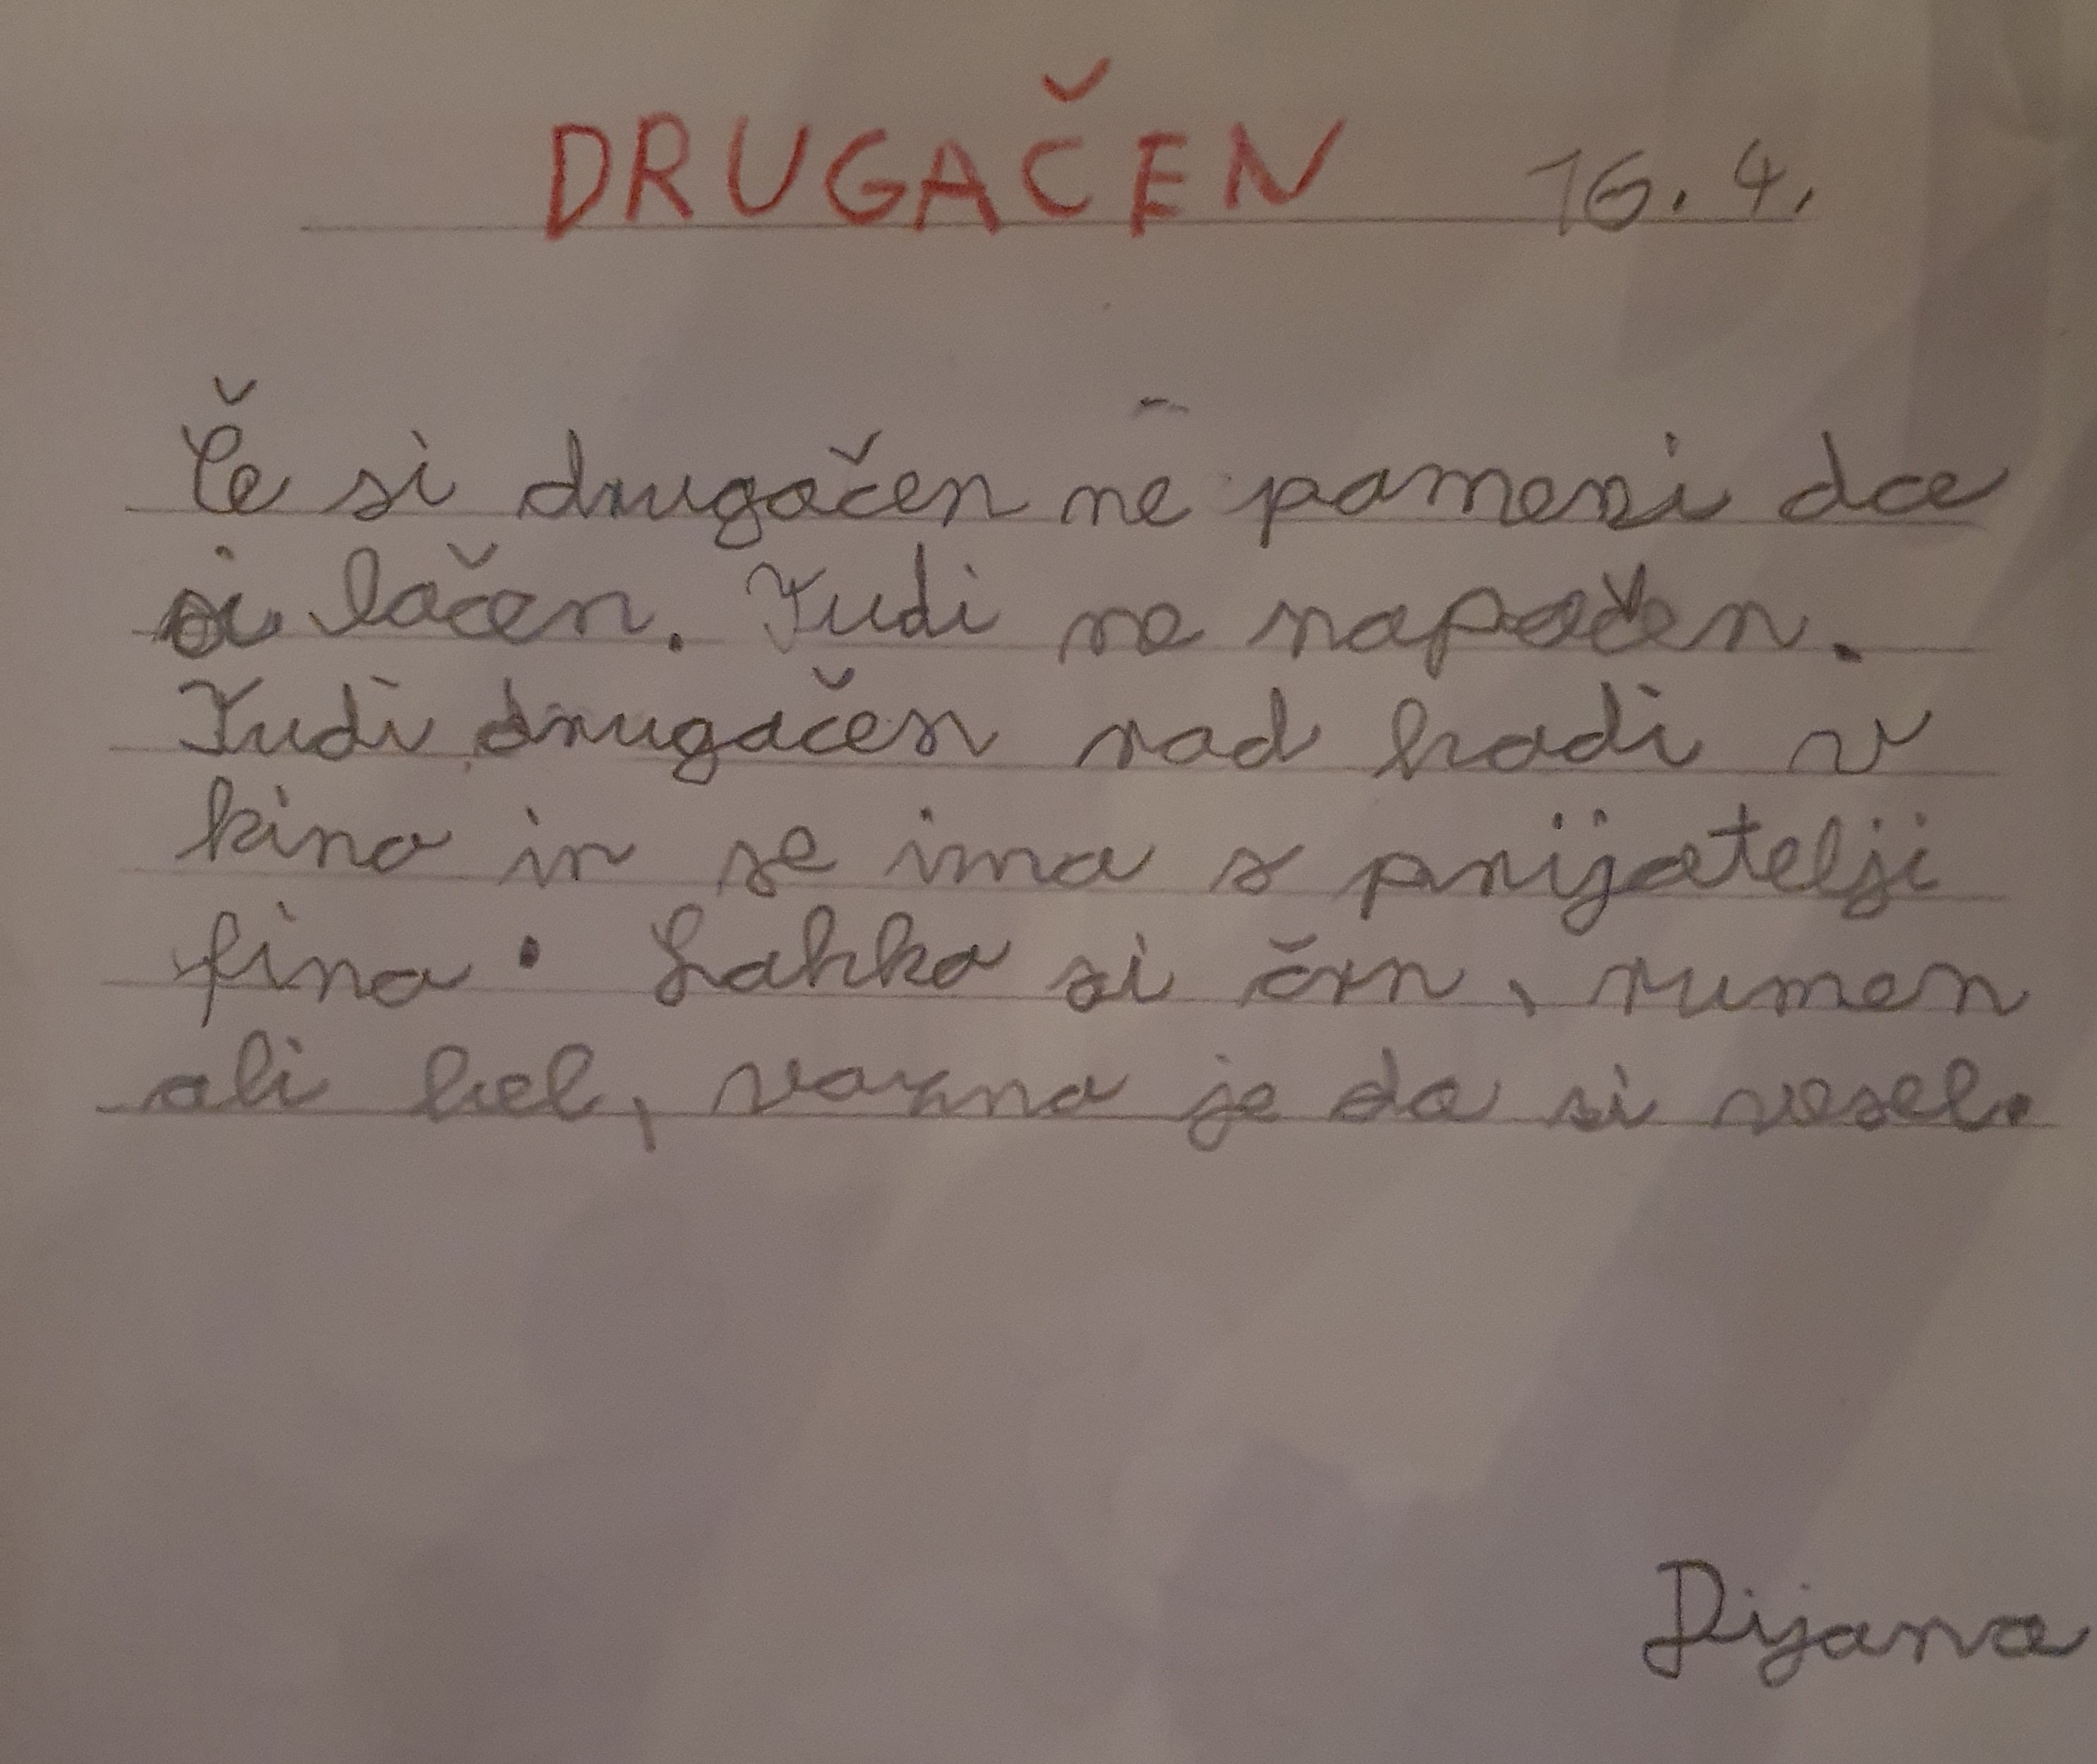 DRUGAČEN 16. 4.
Če si drugačen ne pomeni da
si lačen. Tudi ne napačen.
Tudi drugačen rad hodi v
kino in se ima s prijatelji
fino. Lahko si črn, rumen
ali bel, važno je da si vesel.
Dijana